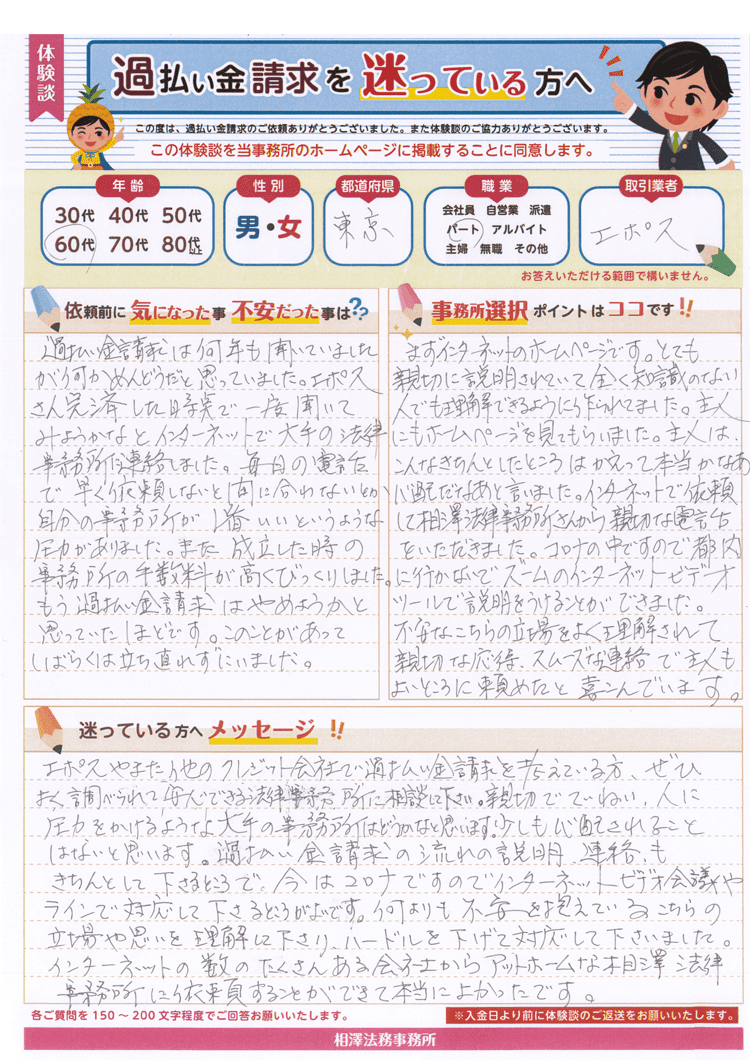 体験談
過払い金請求を 迷っている 方へ
この度は、過払い金請求のご依頼ありがとうございました。また体験談のご協力ありがとうございます。
この体験談を当事務所のホームページに掲載することに同意します。
年齢
30代 40代 50代
60代 70代 80代以上
性別
男・女
都道府県
東京
職業
会社員 自営業 派遣
パート アルバイト
主婦 無職 その他
取引業者
エポス
お答えいただける範囲で構いません。
依頼前に 気になった事 不安だった事は??
過払い金請求は何年も聞いていました
が何かめんどうだと思っていました。エポス
さん完済した時点で一度聞いて
みようかなとインターネットで大手の法律
事務所に連絡しました。毎日の電話
で早く依頼しないと間に合わないとか
自分の事務所が1番いいというような
圧力がありました。また成立した時の
事務所の手数料が高くびっくりしました。
もう過払い金請求はやめようかと
思っていたほどです。このことがあって
しばらくは立ち直れずにいました。
事務所選択 ポイントは ココです!!
まずインターネットのホームページです。とても
親切に説明されていて全く知識のない
人でも理解できるように作られてました。主人
にもホームページを見てもらいました。主人は、
こんなきちんとしたところはかえって本当かなあ
心配だなあと言いました。インターネットで依頼
して相澤法律事務所さんから親切な電話
をいただきました。コロナの中ですので都内
に行かないでズームのインターネットビデオ
ツールで説明をうけることができました。
不安なこちらの立場をよく理解されて
親切な応待、スムーズな連絡で主人も
よいところに頼めたと喜こんでいます。
迷っている方へ メッセージ !!
エポスやまた他のクレジット会社で過払い金請求を考えている方、ぜひ
よく調べられて安心できる法律事務所に相談して下さい。親切でていねい、人に
圧力をかけるような大手の事務所はどうかなと思います。少しも心配されること
はないと思います。過払い金請求の流れの説明、連絡も
きちんとして下さるところで、今はコロナですのでインターネットビデオ会議や
ラインで対応して下さるところがよいです。何よりも不安を抱えているこちらの
立場や思いを理解して下さり、ハードルを下げて対応して下さいました。
インターネットの数のたくさんある会社からアットホームな相澤法律
事務所に依頼することができて本当によかったです。
各ご質問を150～200文字程度でご回答お願いいたします。
※入金日より前に体験談のご返送をお願いいたします。
相澤法務事務所